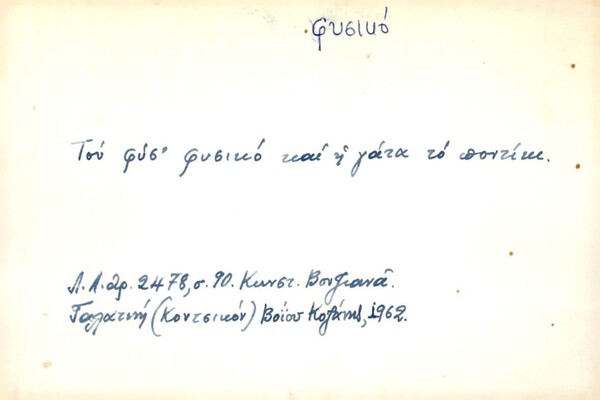 φυσικό
Τού φύσ' φυσικό καί ἡ γάτα τό ποντίκι.
Λ.Λ. ἀρ. 2478, σ. 90. Κωνστ.
Γαλατινή (Κοντσικόν) Βοΐου Κοζάνης, 1962.